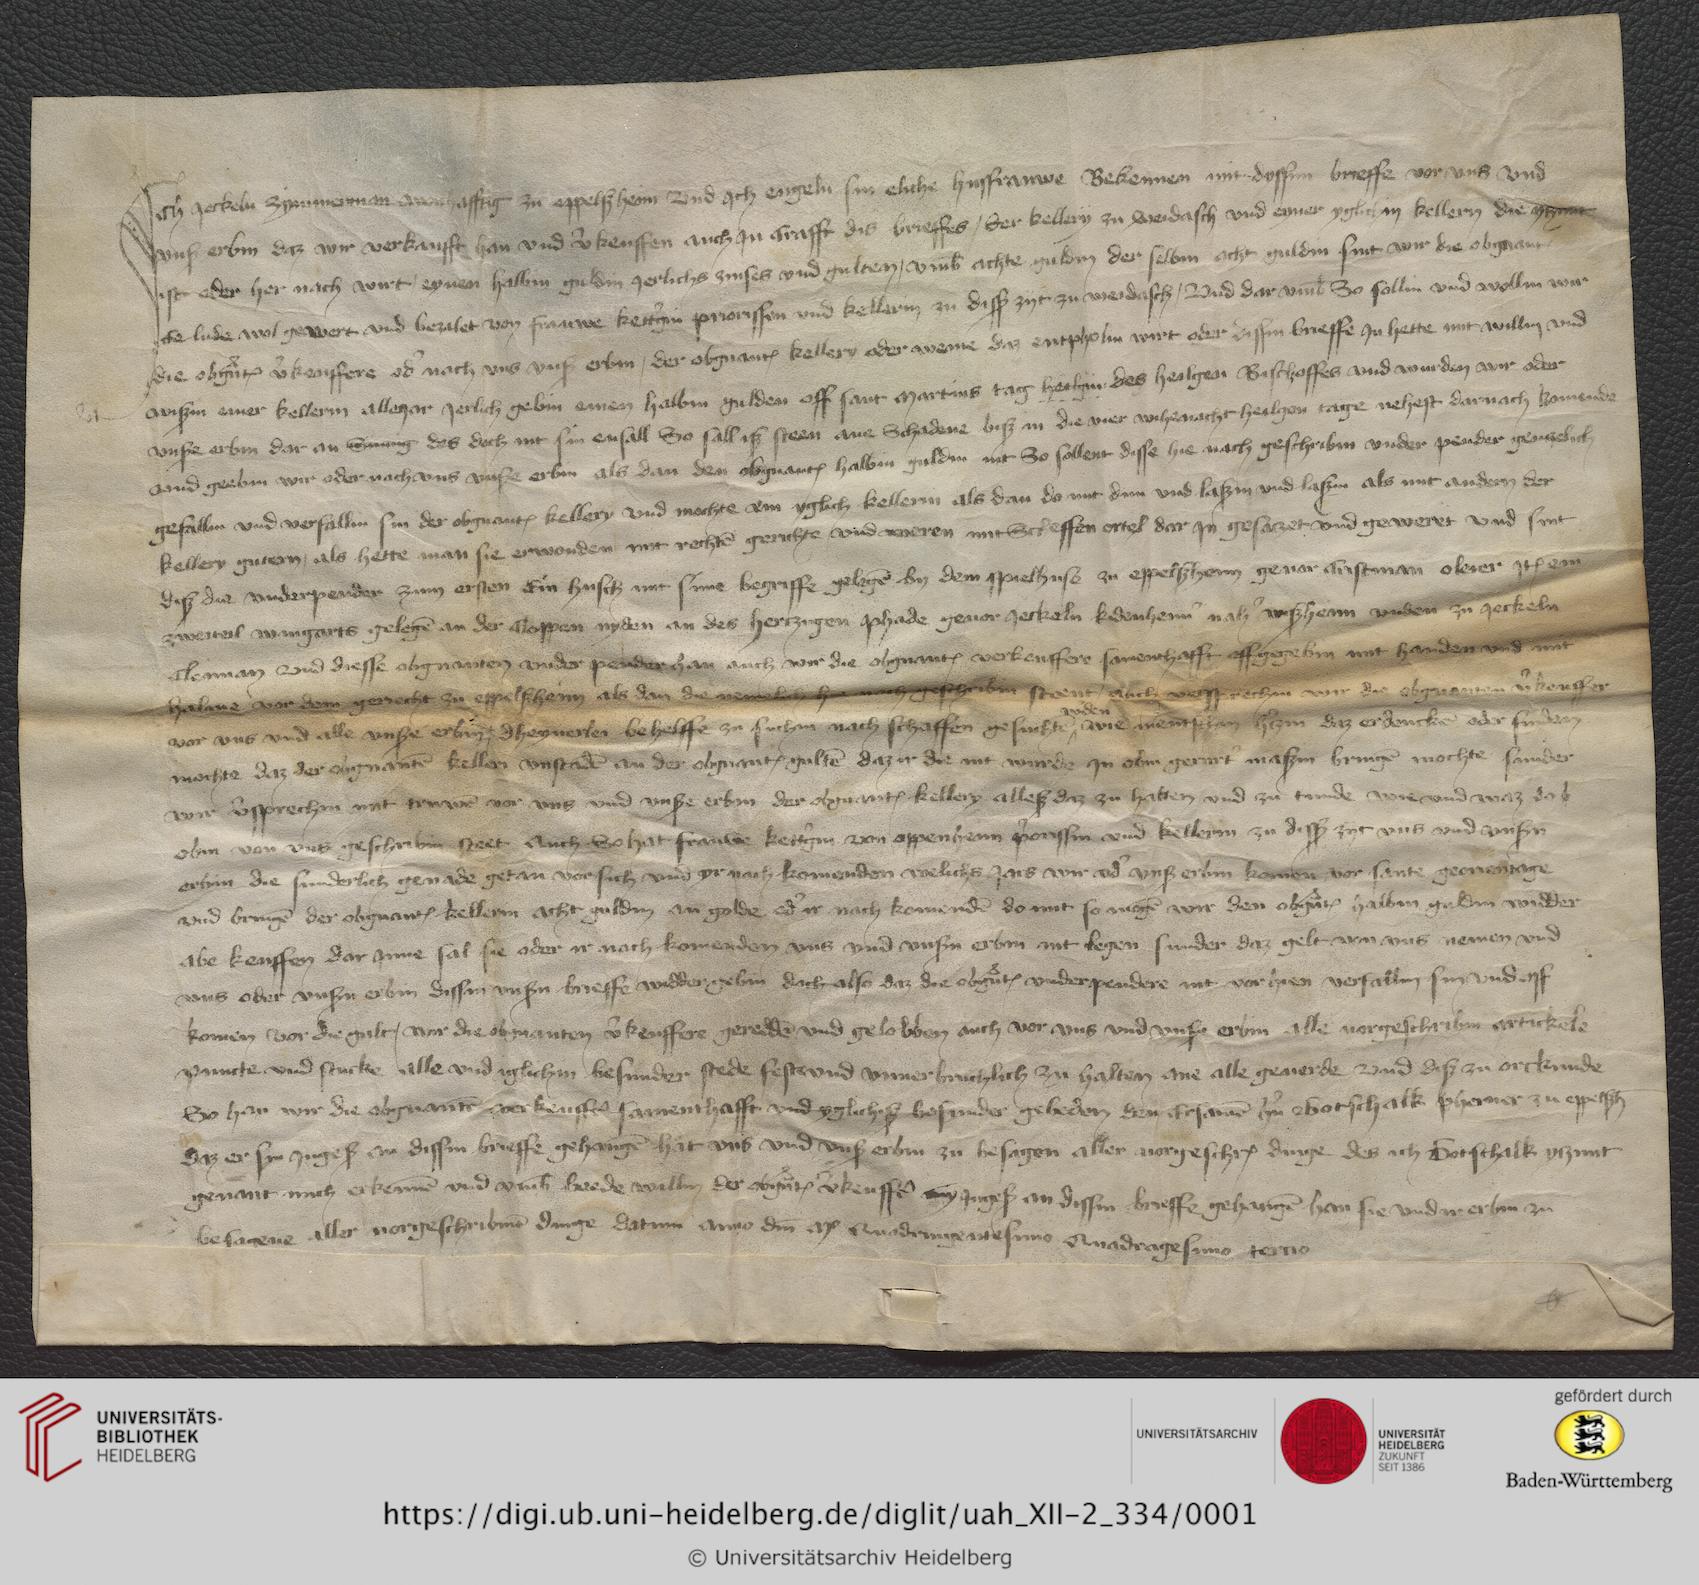 Ich Jeckeln Zymmerman wonhafftig zu eppelßheim Vnd Ich engeln sin eliche husfrauwe Bekennen mit dyssem brieffe vor vns vnd
vnß erbin daz wir verkaufft han vnd v̓keuffen auch In Crafft dis brieffes / der kellery zu weidasch vnd eyner yglichin kellern die
ist oder her nach wirt / eynen halbin guldin Jerlichs zinses vnd gulten / vmb achte guldin der selbin acht guldin sint wir die obgnant
Ee lude wol gewert vnd bezalet von frauwe priorissen vnd kellerin zu disß zyt zu weidasch / Vnd dar vmb So sollin vnd wollin wir
die v̓keuffere od̓ nach vns vnß erbin / der obgnant kellery oder weme daz entpholin wirt oder dissin brieffe In hette mit willin vnd
wißin einer kellerin alleJar Jerlich gebin einen halbin gulden off sant Martins tag des heilgen Bischoffes vnd wurden wir oder
vnße erbin dar an des doch nit sin ensall So sall iß steen ane Schadene biß in die vier wihenacht heilgen tage nehest darnach komende
vnd geebin wir oder nach vns vnße erbin als dan den obgnant halbin guldin nit So sollent disse hie nach geschribin vnder pender genczelich
gefallin vnd verfallin sin der obgnant kellery vnd mochte ein yglich kellerin als dan do mit dun vnd laßin vnd laßin als mit andern der
kellery gutern / als hette man sie erwonden mit rechtē gerichte vnd weren mit Scheffen ortel dar In gesaczet vnd geweret vnd sint
diß die vnderpender zum ersten Ein husch mit sime begriffe gelegē by dem spielhuse zu eppelßheim gevor Cristman oleier It ein
zweiteil wingarts gelegē an der Cloppen nyden an des herczogen phade gevor Jeckeln vnden zu Jeckeln
Cleman Vnd diesse obgnanten vnder pender han auch wir die obgnant verkeuffere samenthafft offgegebin mit handen vnd mit
halme vor dem gerecht zu eppelßheim als dan die hie nach geschribin steent / auch versprechin wir die obgnanten v̓keuffer
vor vns vnd alle vnße erbin / dheynerlei behelffe zu suchin nach schaffen gesuchte wie mentschin daz erdenckē oder finden
mochte daz der obgnantē kellern vnstadē an der obgnant gultē daz ir die nit wurde In obin gerurt̓ maßin bringē mochte sunder
wir v̓sprechin mit truwē vor vns vnd vnße erbin der obgnant kellery alleß daz zu halten vnd zu tunde wie vnd waz do
obin von vns geschribin steet Auch So hat frauwe von oppenheim priorissin vnd kellerin zu disß zyt vns vnd vnßin
erbin die sunderlich genade getan vor sich vnd yr nach komenden welichs Jars wir od̓ vnß erbin komen vor sante georientage
vnd bringē der obgnant kellerin acht guldin an golde od̓ ir nach komendē do mit so mogē wir den halbin guldin widder
abe keuffen dar Inne sal sie oder ir nach komenden vns vnd vnßin erbin nit legen sunder daz gelt von vns nemen vnd
vns oder vnßin erbin dissin vnßin brieffe widder gebin doch also daz die vnderpendere nit vor hien verfallin sin vnd off
komen vor die gult / wir die obgnanten v̓keuffere geredden vnd gelobben auch vor vns vnd vnße erbin alle vorgeschribin artickele
puncte vnd stucke alle vnd iglichin besunder stede fest vnd vnuerbruchlich zu halten ane alle geuerde Vnd diß zu orckunde
So han wir die obgnantē verkeuffer samenthafft vnd yglichß besunder gebeden den Ersamē h̓n Gotschalk pherner zu eppelßh
daz er sin Ingeß an dissin brieffe gehangē hat vns vnd vnß erbin zu besagen aller vorgeschr dinge des ich Gotschalk yczunt
genant mich erkennē vnd vmb beede willin der v̓keuffer myn Ingeß an dissin brieffe gehangē han sie vnd ir erbin zu
besagene aller vorgeschribinē dinge datum anno dm̄ Mͦ Quadringentesimo Quadragesimo tercio
UNIVERSITÄTS-
BIBLIOTHEK
HEIDELBERG
UNIVERSITÄTSARCHIV
UNIVERSITÄT
HEIDELBERG
ZUKUNFT
SEIT 1386
gefördert durch
Baden-Württemberg
https://digi.ub.uni-heidelberg.de/diglit/uah_XII-2_334/0001
© Universitätsarchiv Heidelberg